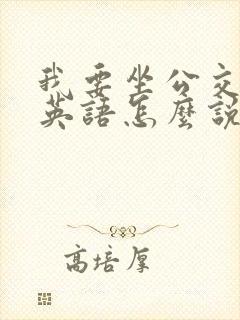 我要坐公交
英語怎麼說
高培厚